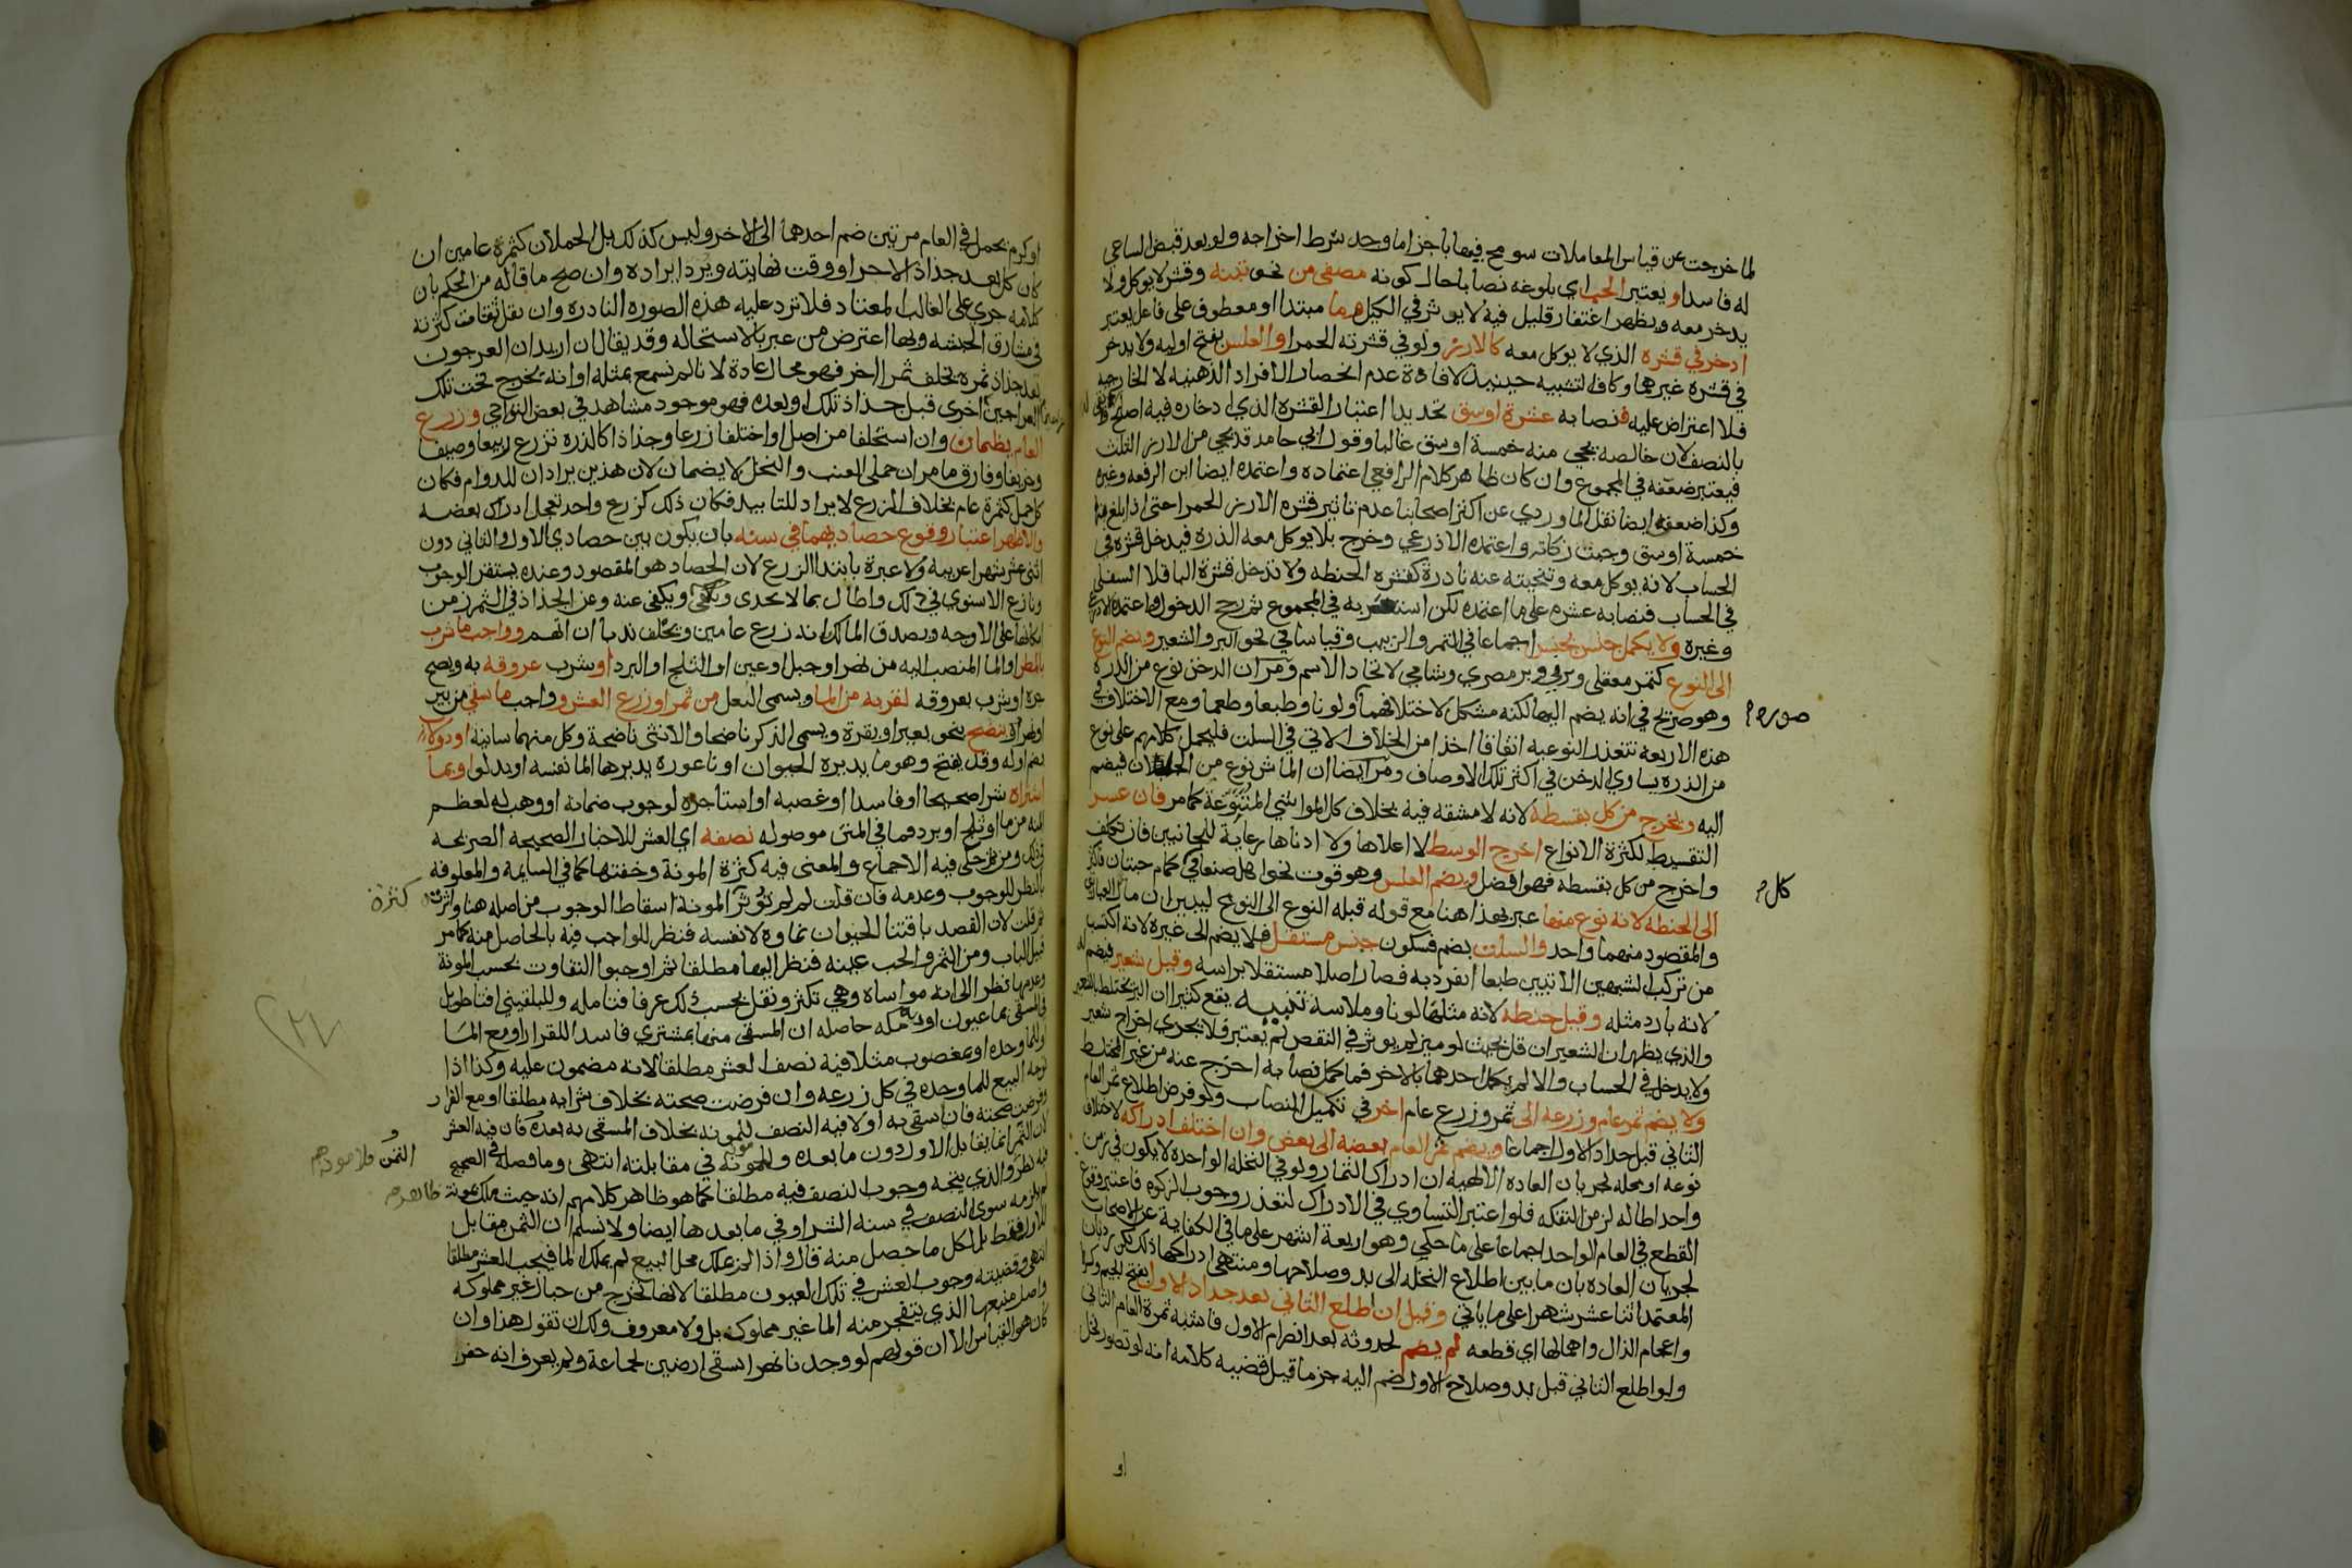 لما خرجت عن قياس المعاملات سومح فيها باجزاما وجد شرط اخراجه ولو بعد قبض الساعي
له فاسدا ويعتبر الحب اي بلوغه نصابا حال كونه مصفى من نحو تبنه وقشر لا يوكل ولا
يدخر معه ويظهر اغتفار قليل فيه لا يوثر في الكيل وما مبتدا او معطوف على فاعل يعتبر
ادخر في قشره الذي لا يوكل معه كالارز ولو في قشرته الحمرا والعلس بفتح اوليه ولا يدخر
في قشره غيرهما وكاف التشبيه حينيذ لافادة عدم انحصار الافراد الذهنيه لا الخارجيه
فلا اعتراض عليه فنصابه عشرة اوسق تحديدا اعتبار القشره الذي ادخاره فيه اصلح
بالنصف لان خالصه يجي منه خمسة اوسق غالبا وقول ابي حامد قد يجي من الارز الثلث
فيعتبر ضعفه في المجموع وان كان ظاهر كلام الرافعي اعتماده واعتمده ايضا ابن الرفعه وغيره
وكذا ضعفه ايضا نقل الماوردي عن اكثر اصحابنا عدم تاثير قشره الارز الحمرا حتى اذا بلغ
خمسة اوسق وجبت زكاته واعتمده الاذرعي وخرج بلا يوكل معه الذره فيدخل قشره في
الحساب لانه يوكل معه وتنحيته عنه نادرة كقشره الحنطه ولا تدخل قشرة الباقلا السفلى
في الحساب فنصابه عشره على ما اعتمده لكن استغربه في المجموع ثم رجح الدخول واعتمده الاذرعي
وغيره ولا يكمل جنس بجنس اجماعا في التمر والزبيب وقياسا في نحو البر والشعير ويضم النوع
الى النوع كتمر معقلي وبرني وبر مصري وشامي لاتحاد الاسم ومر ان الدخن نوع من الذرة
وهو صريح في انه يضم اليها لكنه مشكل لاختلافهما ولونا وطبعا وطعما ومع الاختلاف في
صوره
هذه الاربعه تتعذر النوعيه اتفاقا اخذا من الخلاف الاتي في السلت فليحمل كلامهم على نوع
من الذره يساوي الدخن في اكثر تلك الاوصاف ومر ايضا ان الماش نوع من فيضم
اليه ويخرج من كل بقسطه لانه لا مشقه فيه بخلاف كالمواشي المتنوعة كما مر فان عسر
التقسيط لكثرة الانواع اخرج الوسط لا اعلاها ولا ادناها رعاية للجانبين فان تكلف
واخرج من كل بقسطه فهو افضل ويضم العلس وهو قوت نحو اهل صنعا في كمام حبتان فاكثر
كل
الى الحنطه لانه نوع منها عبر بهذا هنا مع قوله قبله النوع الى النوع ليبين ان مال العبارتين
والمقصود منهما واحد والسلت بضم فسكون جنس مستقل فلا يضم الى غيره لانه اكتسب
من تركب الشبهين الاتيين طبعا انفرد به فصار اصلا مستقلا براسه وقيل شعير فيضم له
لانه بارد مثله وقيل حنطه لانه مثلها لونا وملاسة تنبيه يقع كثيرا ان البر يختلط بالشعير
والذي يظهر ان الشعير ان قل بحيث لو ميز لم يوثر في النقص لم يعتبر فلا يجزي اخراج شعير
ولا يدخل في الحساب والا لم يكمل احدهما بالاخر فما كمل نصابه اخرج عنه من غير المختلط
ولا يضم ثمر عام وزرعه الى ثمر وزرع عام اخر في تكميل النصاب ولو فرض اطلاع ثمر العام
الثاني قبل جداد الاول اجماعا ويضم ثمر العام بعضه الى بعض وان اختلف ادراكه لاختلاف
نوعه او محله لجريان العاده الالهيه ان ادراك الثمار ولو في النخله الواحده لا يكون في زمن
واحد اطاله لزمن التفكه فلو اعتبر التساوي في الادراك لتعذر وجوب الزكوه فاعتبر وقوع
القطع في العام الواحد اجماعا على ما حكي وهو اربعة اشهر على ما في الكفاية عن الاصحاب
لجريان العاده بان ما بين اطلاع النخله الى بدو صلاحها ومنتهى ادراكها ذلك لكن رد بان
المعتمد اثنا عشر شهرا على ما ياتي وقيل ان اطلع الثاني بعد جداد الاول بفتح الجيم وكسرها
واعجام الذال واهمالها اي قطعه لم يضم لحدوثه بعد انصرام الاول فاشبه ثمرة العام الثاني
ولو اطلع الثاني قبل بدو صلاح الاول ضم اليه جزما قيل قضيه كلامه انه لو تصور نخل
او
او كرم يحمل في العام مرتين ضم احدهما الى الاخر وليس كذلك بل الحملان كثمرة عامين ان
كان كل بعد جذاذ الاخر او وقت نهايته ويرد ايراده وان صح ما قاله من الحكم بان
كلامه جري على الغالب المعتاد فلا ترد عليه هذه الصوره النادره وان نقل ثقات كثرته
في مشارق الحبشه وبها اعترض من عبر بالاستحاله وقد يقال ان اريد ان العرجون
بعد جذاذ ثمره يخلف ثمرا اخر فهو محال عادة لانا لم نسمع بمثله او انه يخرج تحت تلك
العراجين اخرى قبل جذاذ تلك او بعده فهو موجود مشاهد في بعض النواحي وزرع
العام يضمان وان استخلفا من اصل او اختلفا زرعا وجذاذا كالذره تزرع ربيعا وصيفا
وخريفا وفارق ما مر ان حملى العنب والنخل لا يضمان لان هذين يرادان للدوام فكان
كل حمل كثمرة عام بخلاف الزرع لا يراد للتابيد فكان ذلك كزرع واحد تعجل ادراك بعضه
والاظهر اعتبار وقوع حصاديهما في سنه بان يكون بين حصادي الاول والثاني دون
اثني عشر شهرا عربيه ولا عبرة بابتدا الزرع لان الحصاد هو المقصود وعنده يستقر الوجوب
ونازع الاسنوي في ذلك واطال بما لا يجدى ويكفى عنه وعن الجذاذ في الثمر زمن
امكانهما على الاوجه ويصدق المالك انه زرع عامين ويحلف ندبا ان اتهم وواجب ما شرب
بالمطر او الما المنصب اليه من نهر او جبل او عين او الثلج او البرد او شرب عروقه به ويصح
جره او شرب بعروقه لقربه من الما ويسمى البعل من ثمر او زرع العشر وواجب ما سقي من بير
او نهر بنضح بنحو بعير او بقرة ويسمى الذكر ناضحا والانثى ناضحة وكل منهما سانية او دولاب
بضم اوله وقد يفتح وهو ما يديره الحيوان او ناعوره يديرها الما نفسه او بدلو او بما
اشتراه شرا صحيحا او فاسدا او غصبه او استاجره لوجوب ضمانه او وهب له لعظم
المنه من ما او ثلج او برد فما في المتن موصوله نصفه اي العشر للاخبار الصحيحه الصريحه
في ذلك ومن ثم حكى فيه الاجماع والمعنى فيه كثرة المونة وخفتها كما في السايمة والمعلوفه
بالنظر للوجوب وعدمه فان قلت لم لم توثر المونة اسقاط الوجوب من اصله هنا واثرت
كثرة
ثم قلت لان القصد باقتنا الحيوان نماوه لا نفسه فنظر للواجب فيه بالحاصل منه كما مر
قبيل الباب ومن الثمر والحب عينه فنظر اليها مطلقا ثم اوجبوا التفاوت بحسب المونة
وعدمها نظرا الى انه مواساه وهي تكثر وتقل بحسب ذلك عرفا فتامله وللبلقيني افتا طويل
في المسقى بما عيون او دية مكه حاصله ان المسقى منها بمشتري فاسدا للقرار او مع الما
والما وحده او بمغصوب مثلا فيه نصف العشر مطلقا لانه مضمون عليه وكذا اذا
البيع للما وحده في كل زرعه وان فرضت صحته بخلاف شرايه مطلقا او مع القرار
وفرضت صحته فان اسقى به اولا فيه النصف للمونه بخلاف المسقى به بعده فان فيه العشر
لان الثمن انما يقابل الاول دون ما بعده في مقابلته انتهى وما فصله في الصحيح
الثمن فلا مونه
فيه نظر والذي يتجه وجوب النصف فيه مطلقا كما هو ظاهر كلامهم انه حيث ملك بمونة
ظاهر
لم يلزمه سوى النصف في سنه الشرا وفي ما بعدها ايضا ولا نسلم ان الثمن مقابل
للاول فقط بل لكل ما حصل منه قال واذا لم يملك محل البيع لم يملك الما فيجب العشر مطلقا
انتهى وقضيته وجوب العشر في تلك العيون مطلقا لانها تخرج من جبال غير مملوكه
واصل منبعها الذي يتفجر منه الما غير مملوك بل ولا معروف ولك ان تقول هذا وان
كان هو القياس الا ان قولهم لو وجدنا نهرا يسقى ارضين لجماعة ولم يعرف انه حفر